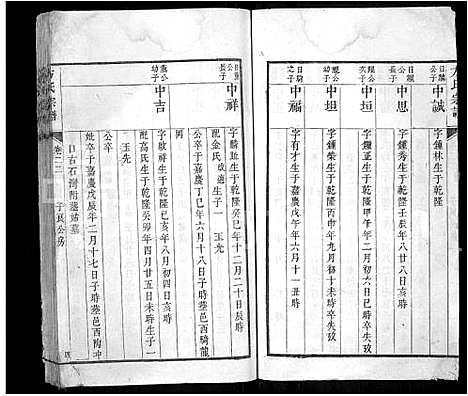 方氏宗譜
中誠
字鍾林生于乾隆
中思
字鍾秀生于乾隆壬辰年八月廿八日亥時
中垣
字鍾正生于乾隆甲午年二月初六日巳時卒失攷
中坦
字鍾榮生于乾隆丙申年九月初十未時卒失攷
日騎之子
中福
字有才生于嘉慶戊午年六月十一丑時
長子
中祥
字麟趾生于乾隆癸巳年十二月二十日辰時
配金氏生子一 玉光
公卒于嘉慶丁巳年六月十八日子時墓邑西騎龍
幼子
中吉
字啟祥生于乾隆己亥年八月初四日亥時
配高氏生于乾隆癸卯年四月廿五日未時生子一
玉先
公卒
妣卒于嘉慶戊辰年二月十七日子時墓邑西陶冲
口右石灣附墓
卷二二
子良公房
四